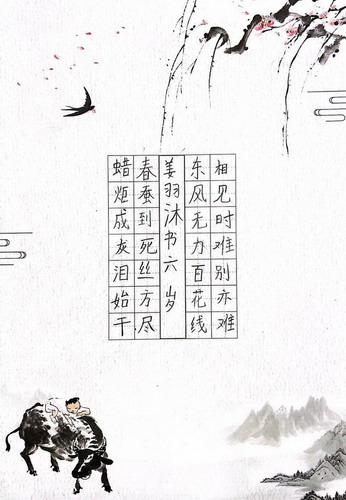 相见时难别亦难
东风无力百花线
姜羽沐书六岁
春蚕到死丝方尽
蜡炬成灰泪始干